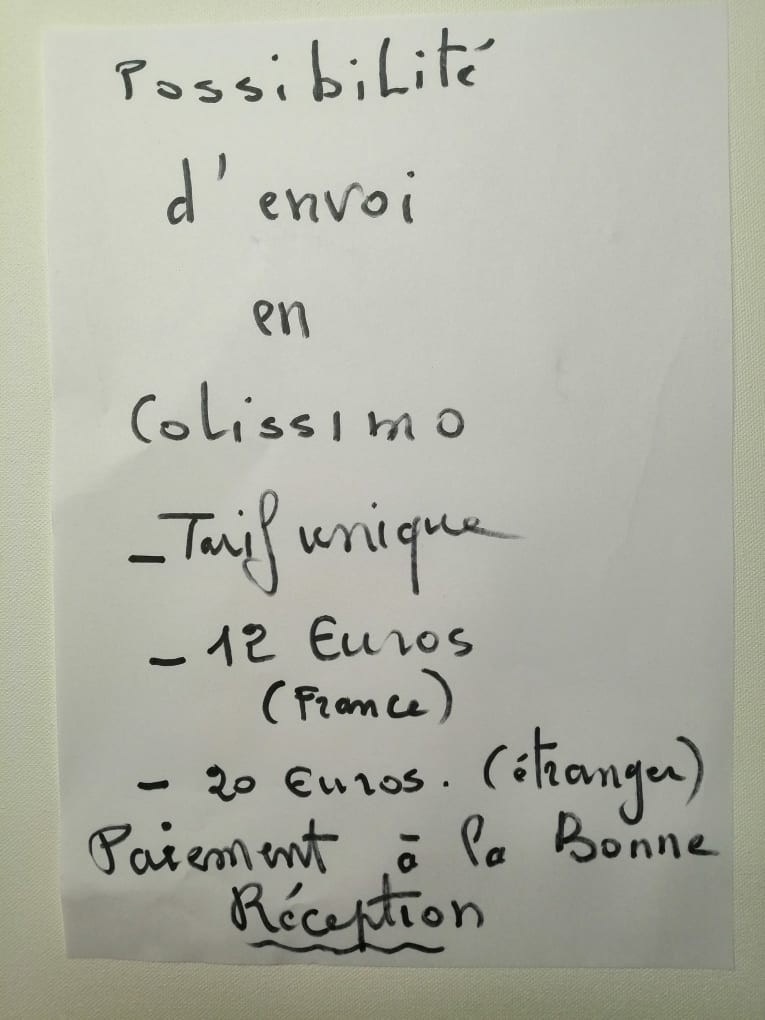 Possibilité
d'envoi
en
Colissimo
- Tarif unique
- 12 Euros
(France)
- 20 Euros. (étranger)
Paiement à la Bonne
Réception